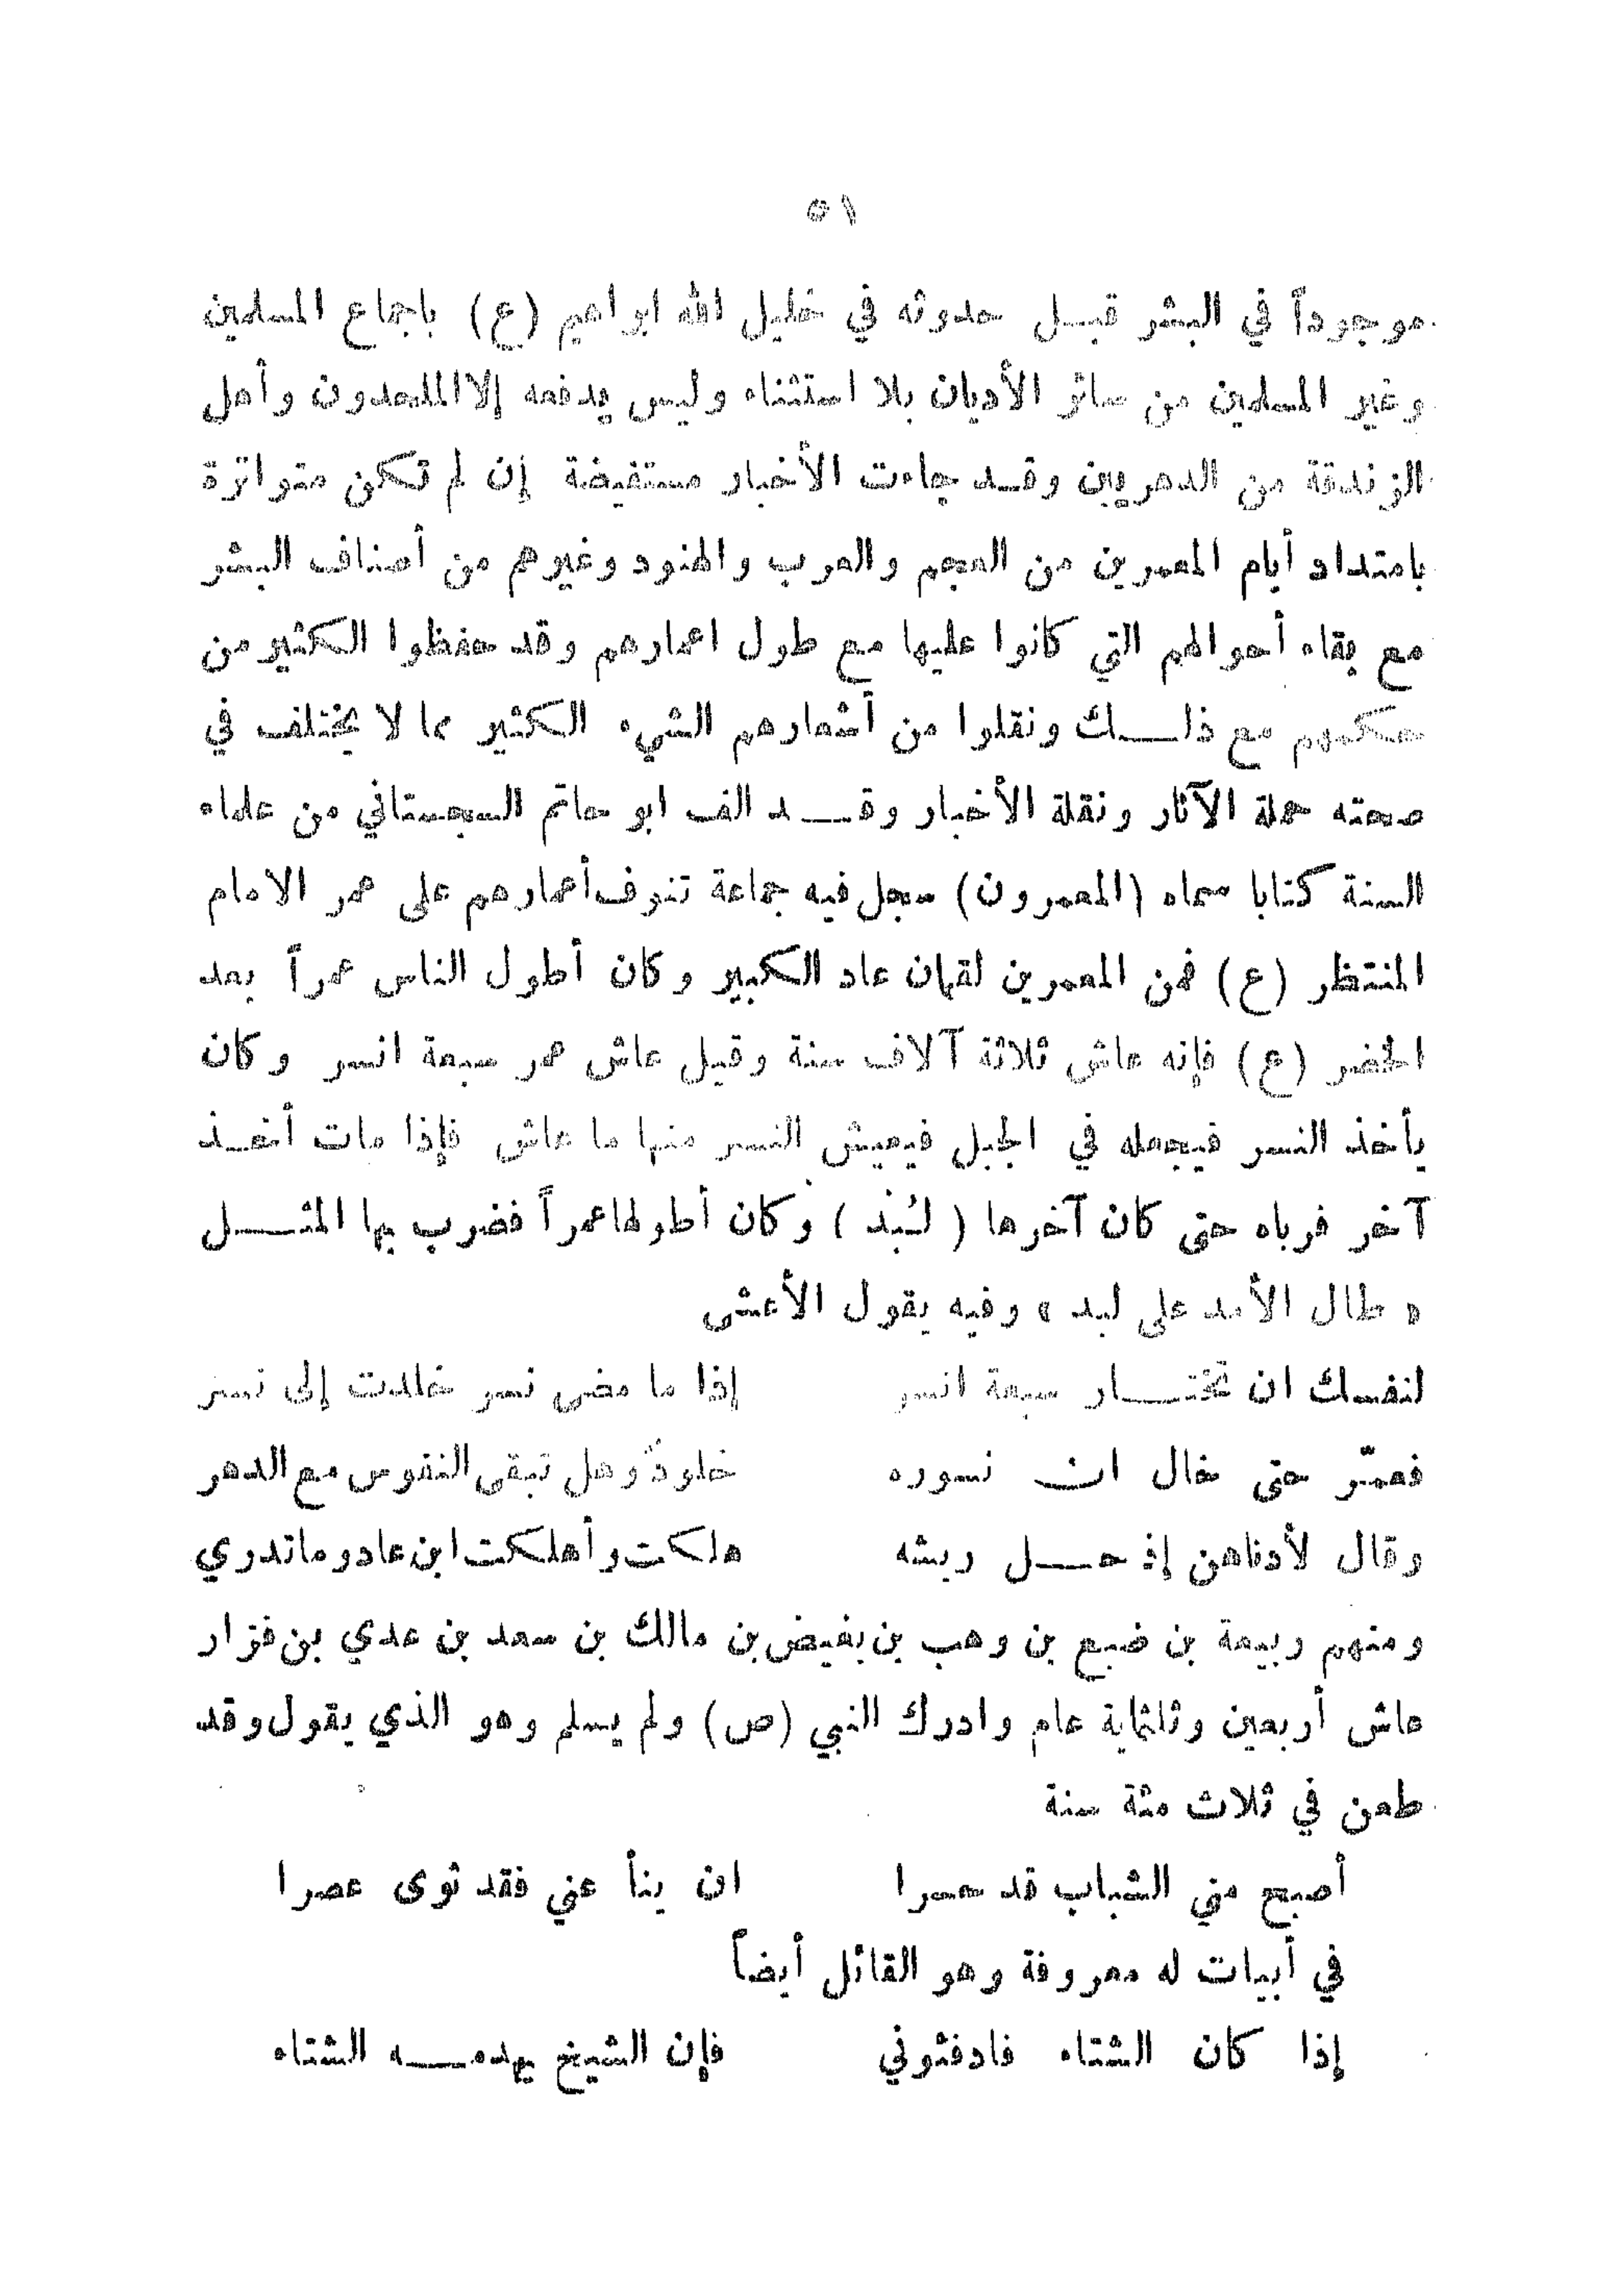 ٥١
موجوداً في البشر قبل حدوثه في خليل الله ابراهيم (ع) باجماع المسلمين
وغير المسلمين من سائر الأديان بلا استثناء وليس يدفعه إلا الملحدون وأهل
الزندقة من الدهريين وقد جاءت الأخبار مستفيضة إن لم تكن متواترة
بامتداد أيام المعمرين من العجم والعرب والهنود وغيرهم من أصناف البشر
مع بقاء أحوالهم التي كانوا عليها مع طول اعمارهم وقد حفظوا الكثير من
حكمهم مع ذلك ونقلوا من أشعارهم الشيء الكثير مما لا يختلف في
صحته حملة الآثار ونقلة الأخبار وقد الف ابو حاتم السجستاني من علماء
السنة كتابا سماه (المعمرون) سجل فيه جماعة تنوف أعمارهم على عمر الامام
المنتظر (ع) فمن المعمرين لقمان عاد الكبير وكان أطول الناس عمراً بعد
الخضر (ع) فإنه عاش ثلاثة آلاف سنة وقيل عاش عمر سبعة انسر وكان
يأخذ النسر فيجعله في الجبل فيعيش النسر منها ما عاش فإذا مات أخذ
آخر فرباه حتى كان آخرها ( لُبَد ) وكان أطولها عمراً فضرب بها المثل
« طال الأمد على لبد » وفيه يقول الأعشى
لنفسك ان تختار سبعة انسر إذا ما مضى نسر خلدت إلى نسر
فعمّر حتى خال ان نسوره خلودٌ وهل تبقى النفوس مع الدهر
وقال لأدناهن إذ حل ريشه هلكت وأهلكت ابن عاد وما تدري
ومنهم ربيعة بن ضبع بن وهب بن بغيض بن مالك بن سعد بن عدي بن فزار
عاش أربعين وثلثماية عام وادرك النبي (ص) ولم يسلم وهو الذي يقول وقد
طعن في ثلاث مئة سنة
أصبح مني الشباب قد حسرا ان ينأ عني فقد ثوى عصرا
في أبيات له معروفة وهو القائل أيضاً
إذا كان الشتاء فادفئوني فإن الشيخ يهدمه الشتاء